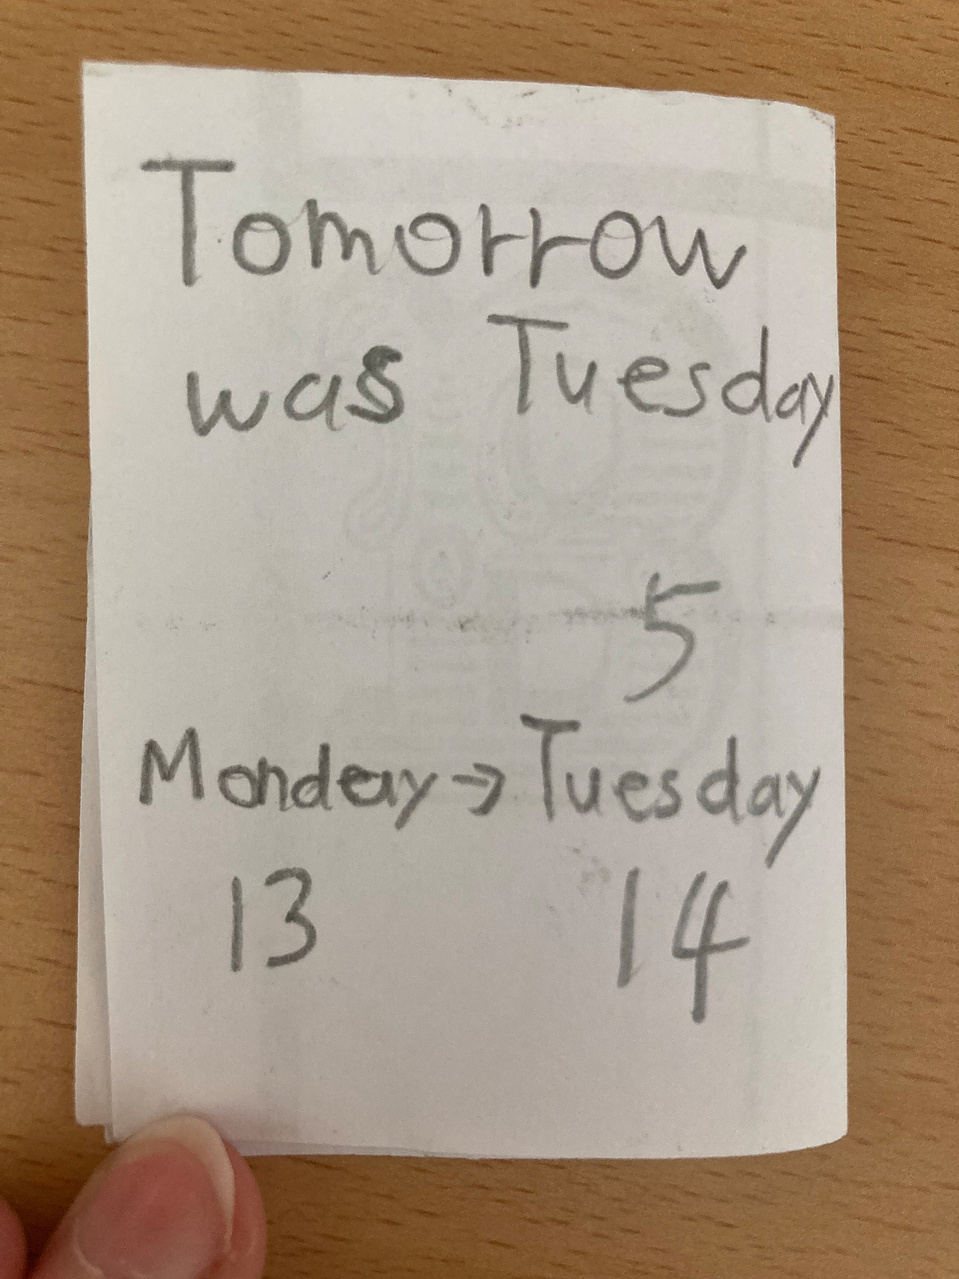 Tomorrow
was Tuesday
5
Monday → Tuesday
13 14